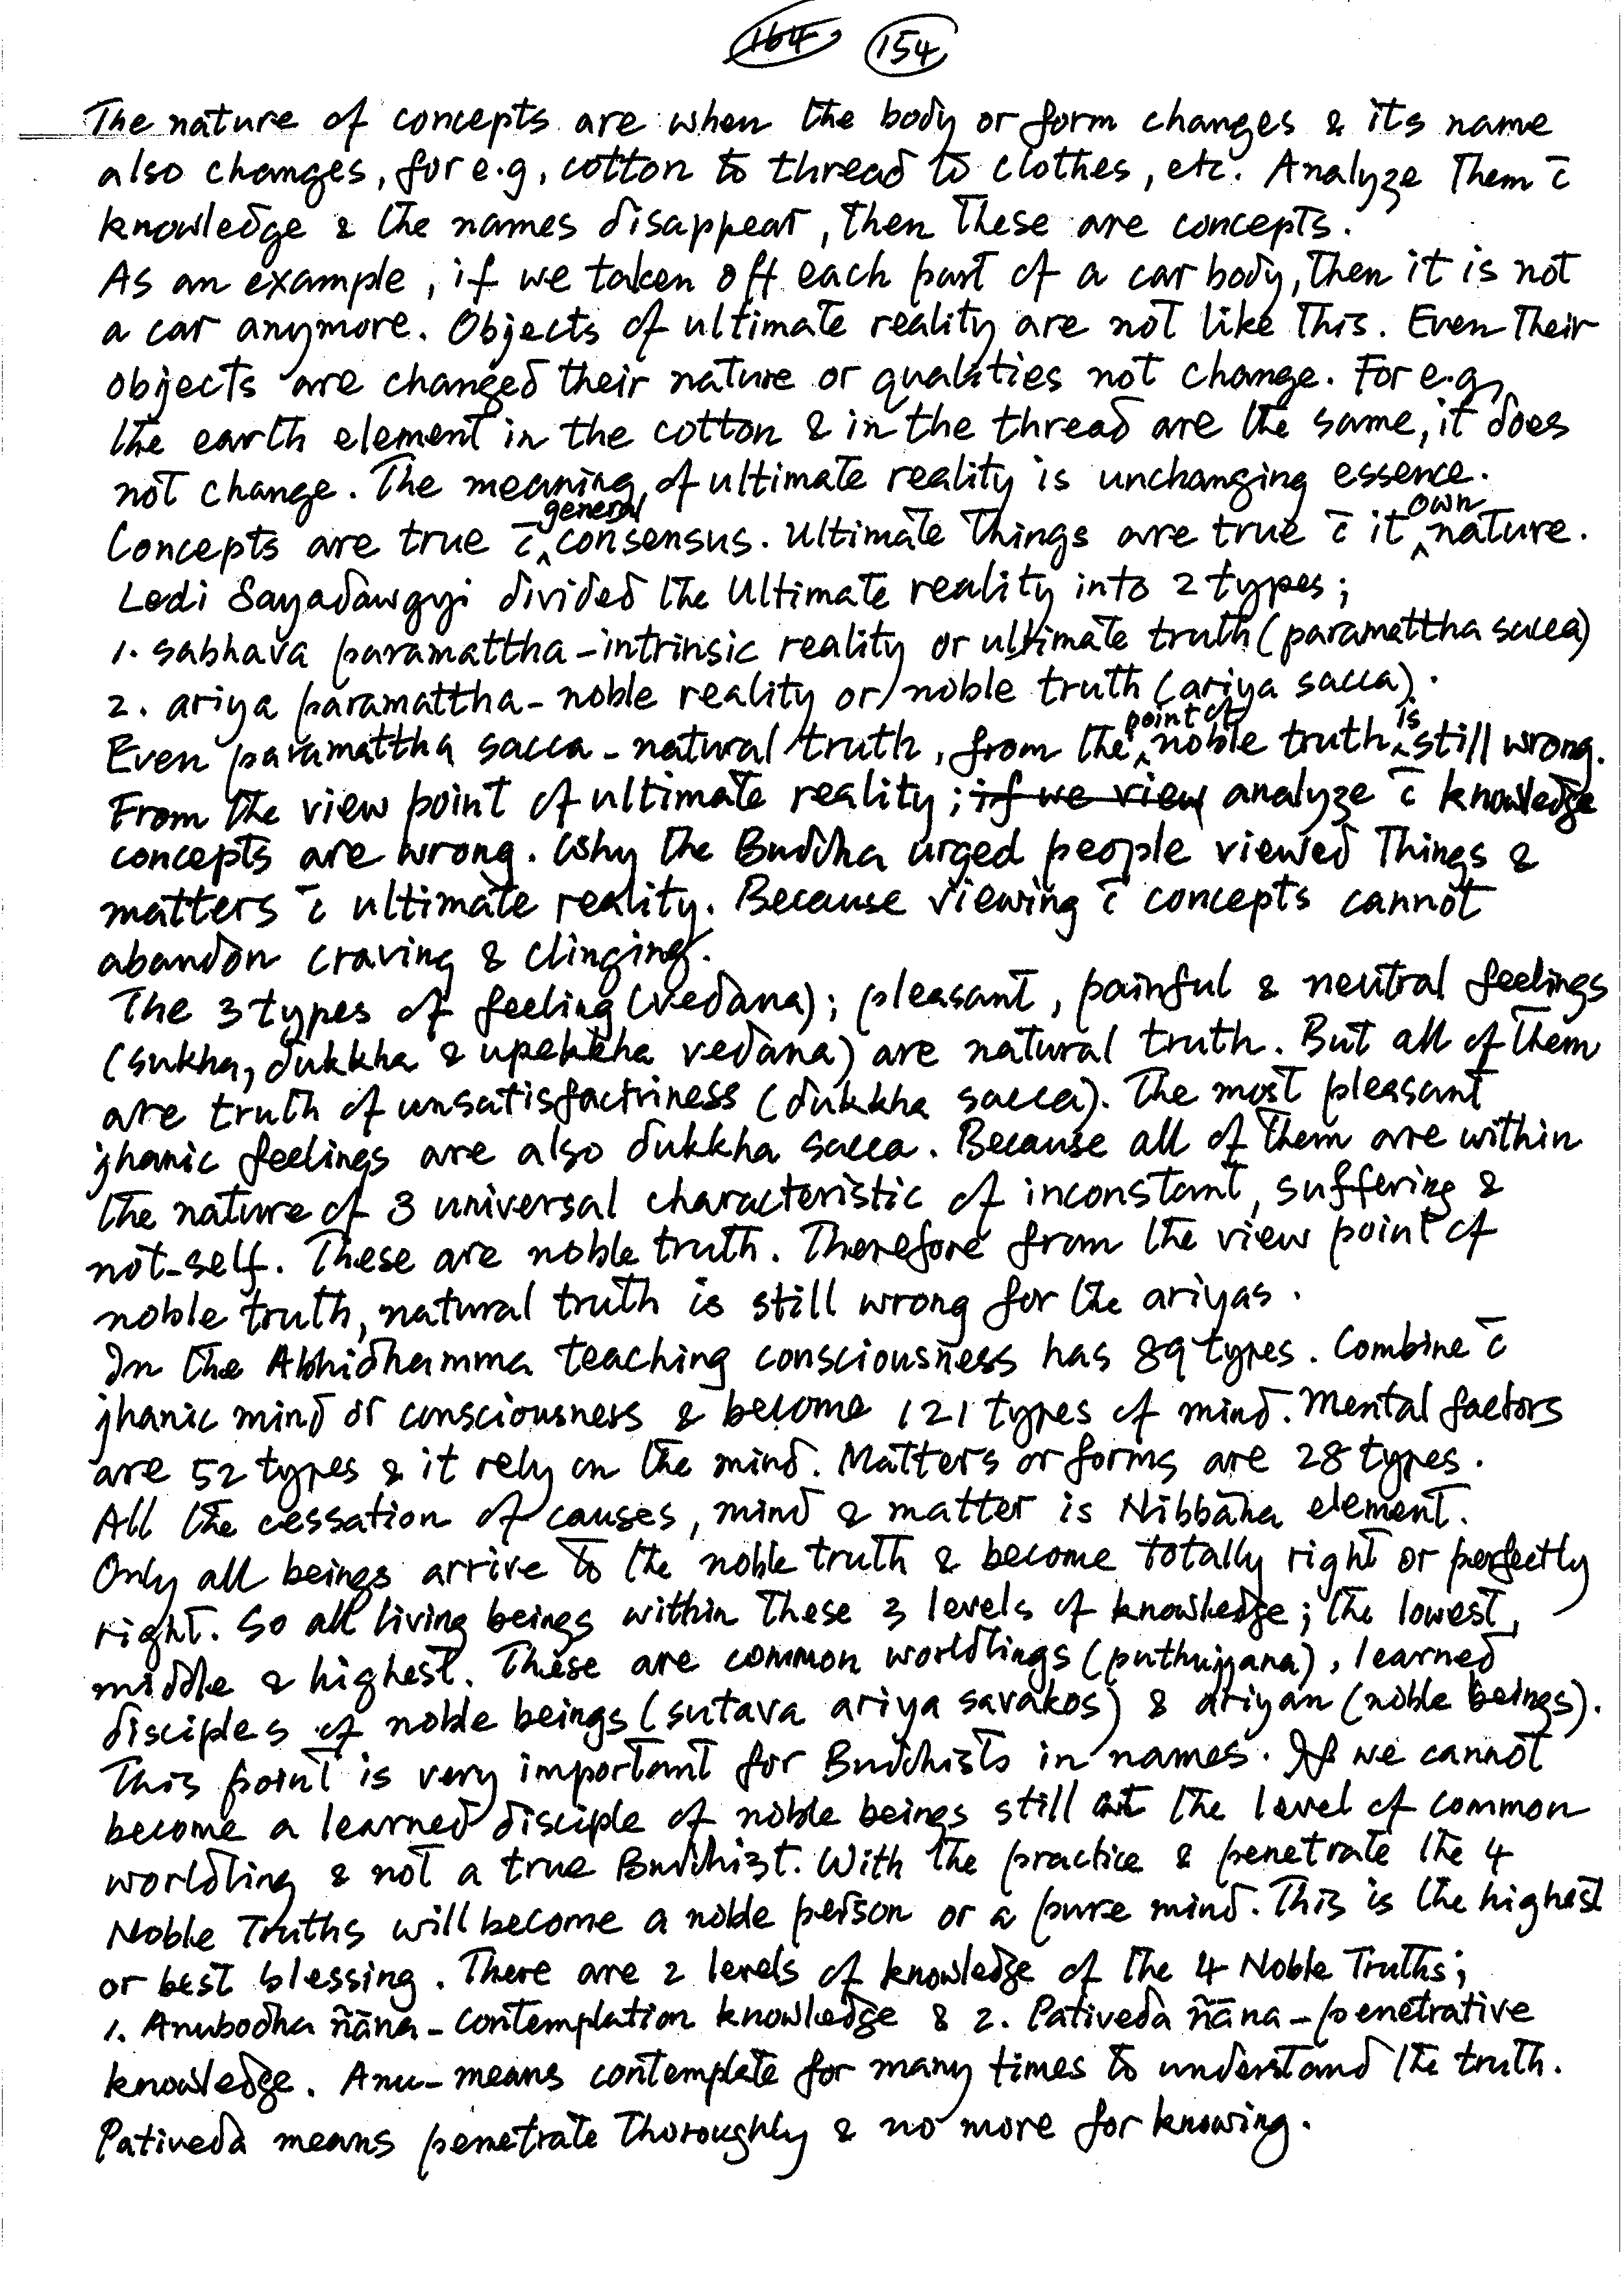 164 154
The nature of concepts are when the body or form changes & its name
also changes, for e.g, cotton to thread to clothes, etc. Analyze them c̄
knowledge & the names disappear, then these are concepts.
As an example, if we taken off each part of a car body, then it is not
a car anymore. Objects of ultimate reality are not like this. Even their
objects are changed their nature or qualities not change. For e.g,
the earth element in the cotton & in the thread are the same, it does
not change. The meaning of ultimate reality is unchanging essence.
Concepts are true c̄ general consensus. Ultimate things are true c̄ it own nature.
Ledi Sayadawgyi divided the Ultimate reality into 2 types;
1. sabhava paramattha - intrinsic reality or ultimate truth (paramattha sacca)
2. ariya paramattha - noble reality or noble truth (ariya sacca).
Even paramattha sacca - natural truth, from the point of noble truth is still wrong.
From the view point of ultimate reality; if we view analyze c̄ knowledge
concepts are wrong. Why the Buddha urged people viewed things &
matters c̄ ultimate reality. Because viewing c̄ concepts cannot
abandon craving & clinging.
The 3 types of feeling (vedana); pleasant, painful & neutral feelings
(sukha, dukkha & upekkha vedana) are natural truth. But all of them
are truth of unsatisfactriness (dukkha sacca). The most pleasant
jhanic feelings are also dukkha sacca. Because all of them are within
the nature of 3 universal characteristic of inconstant, suffering &
not-self. These are noble truth. Therefore from the view point of
noble truth, natural truth is still wrong for the ariyas.
In the Abhidhamma teaching consciousness has 89 types. Combine c̄
jhanic mind or consciousness & become 121 types of mind. Mental factors
are 52 types & it rely on the mind. Matters or forms are 28 types.
All the cessation of causes, mind & matter is Nibbāna element.
Only all beings arrive to the noble truth & become totally right or perfectly
right. So all living beings within these 3 levels of knowledge; the lowest,
middle & highest. These are common worldlings (puthujjana), learned
disciples of noble beings (sutava ariya savakos) & ariyan (noble beings).
This point is very important for Buddhists in names. If we cannot
become a learned disciple of noble beings still at the level of common
worldling & not a true Buddhist. With the practice & penetrate the 4
Noble Truths will become a noble person or a pure mind. This is the highest
or best blessing. There are 2 levels of knowledge of the 4 Noble Truths;
1. Anubodha ñāna - contemplation knowledge & 2. Pativeda ñāna - penetrative
knowledge. Anu- means contemplate for many times to understand the truth.
Pativeda means penetrate thoroughly & no more for knowing.